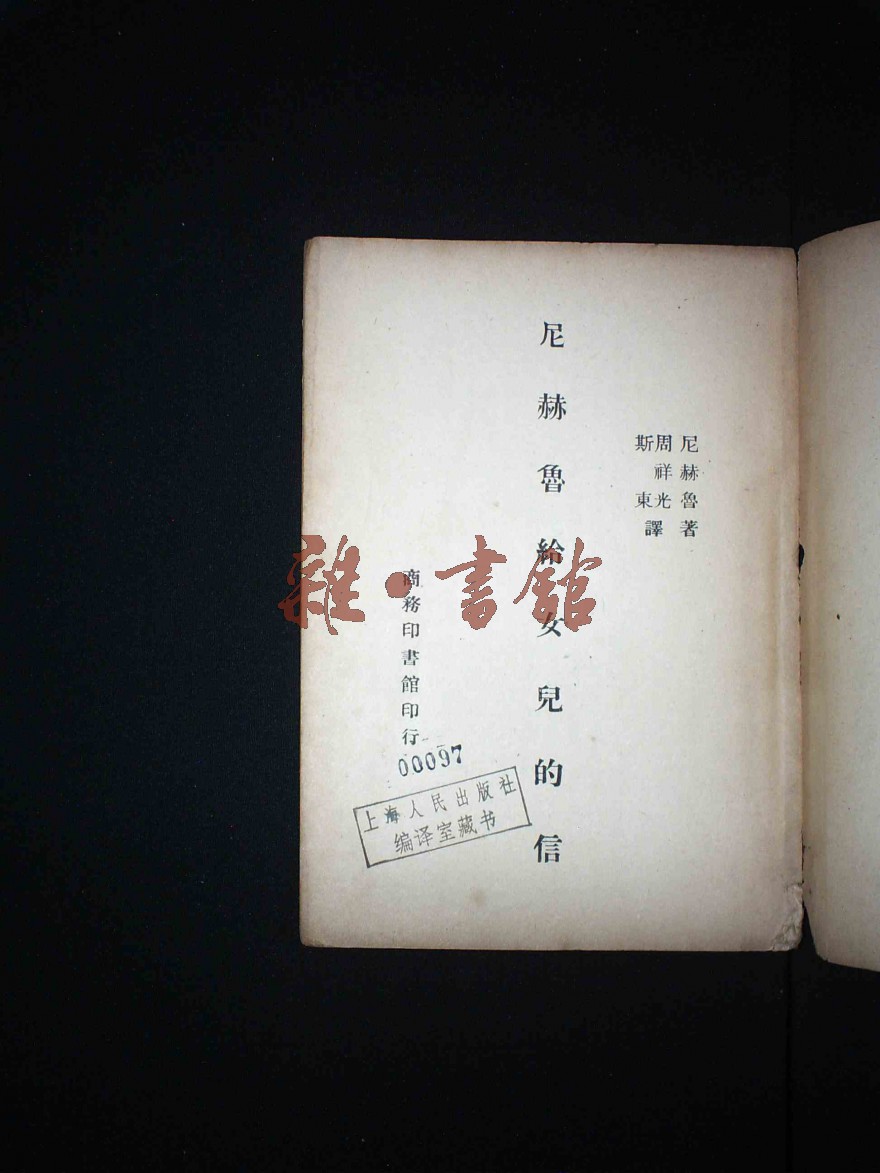 尼赫魯著
周祥光
斯東
譯
尼赫魯給女兒的信
商務印書館印行
00097
上海人民出版社
编译室藏书
雜·書館